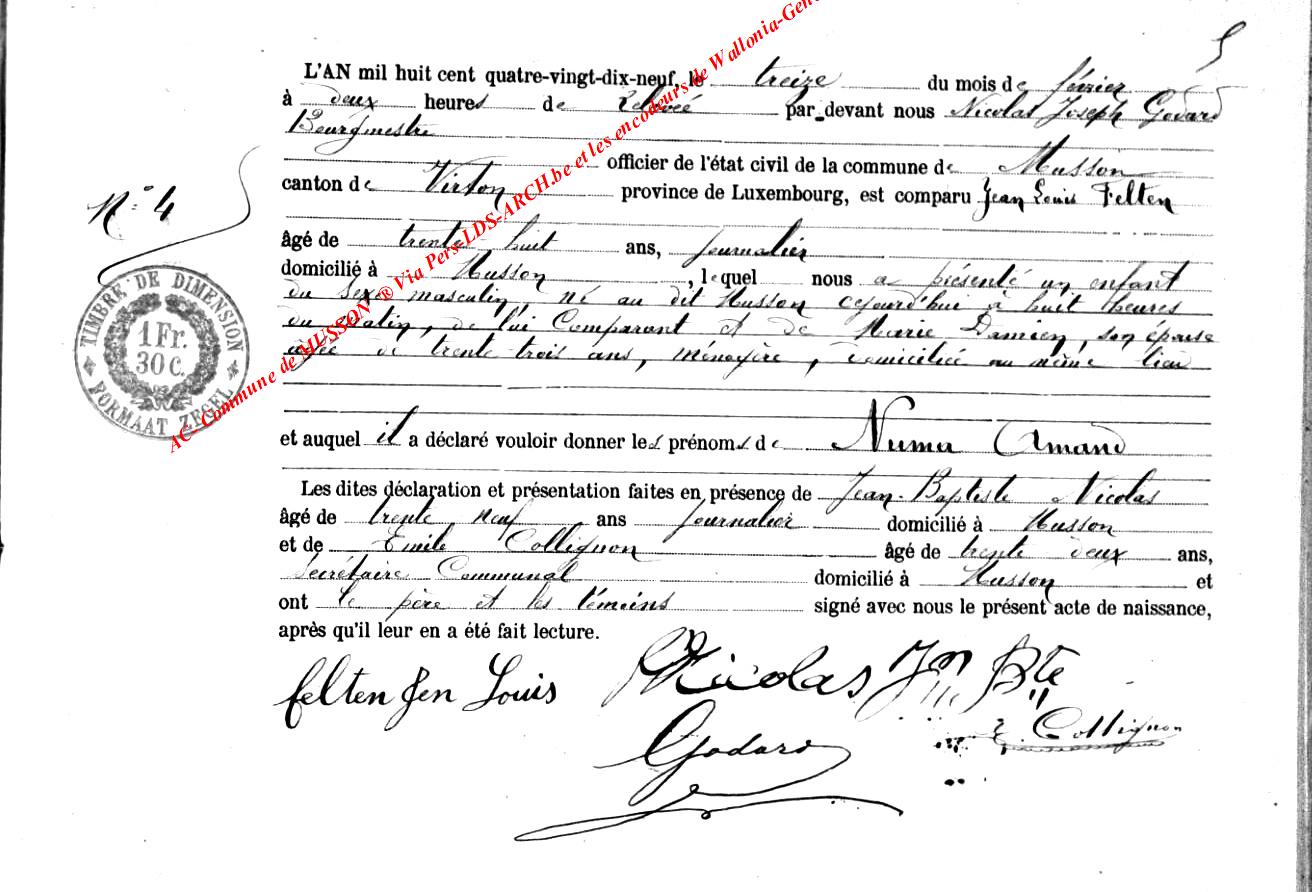 5
L'AN mil huit cent quatre-vingt-dix-neuf, le treize du mois de février
à deux heures de relevée par devant nous Nicolas Joseph Godard
Bourgmestre
officier de l'état civil de la commune de Musson
canton de Virton province de Luxembourg, est comparu Jean Louis Felten
N° 4
âgé de trente huit ans, journalier
domicilié à Musson, lequel nous a présenté un enfant
du sexe masculin, né au dit Musson cejourd'hui à huit heures
du matin, de lui Comparant et de Marie Damien, son épouse
âgée de trente trois ans, ménagère, domiciliée au même lieu
TIMBRE DE DIMENSION
1 Fr.
30 C.
FORMAAT ZEGEL
et auquel il a déclaré vouloir donner les prénoms de Numa Amand
Les dites déclaration et présentation faites en présence de Jean-Baptiste Nicolas
âgé de trente neuf ans journalier domicilié à Musson
et de Emile Collignon âgé de trente deux ans,
Secrétaire Communal domicilié à Musson et
ont le père et les témoins signé avec nous le présent acte de naissance,
après qu'il leur en a été fait lecture.
felten Jen Louis Nicolas Jn Bte
E. Collignon
Godard
AC-Commune de MUSSON ® Via Pers-LDS-ARCH.be et les encodeurs de Wallonia-Gen